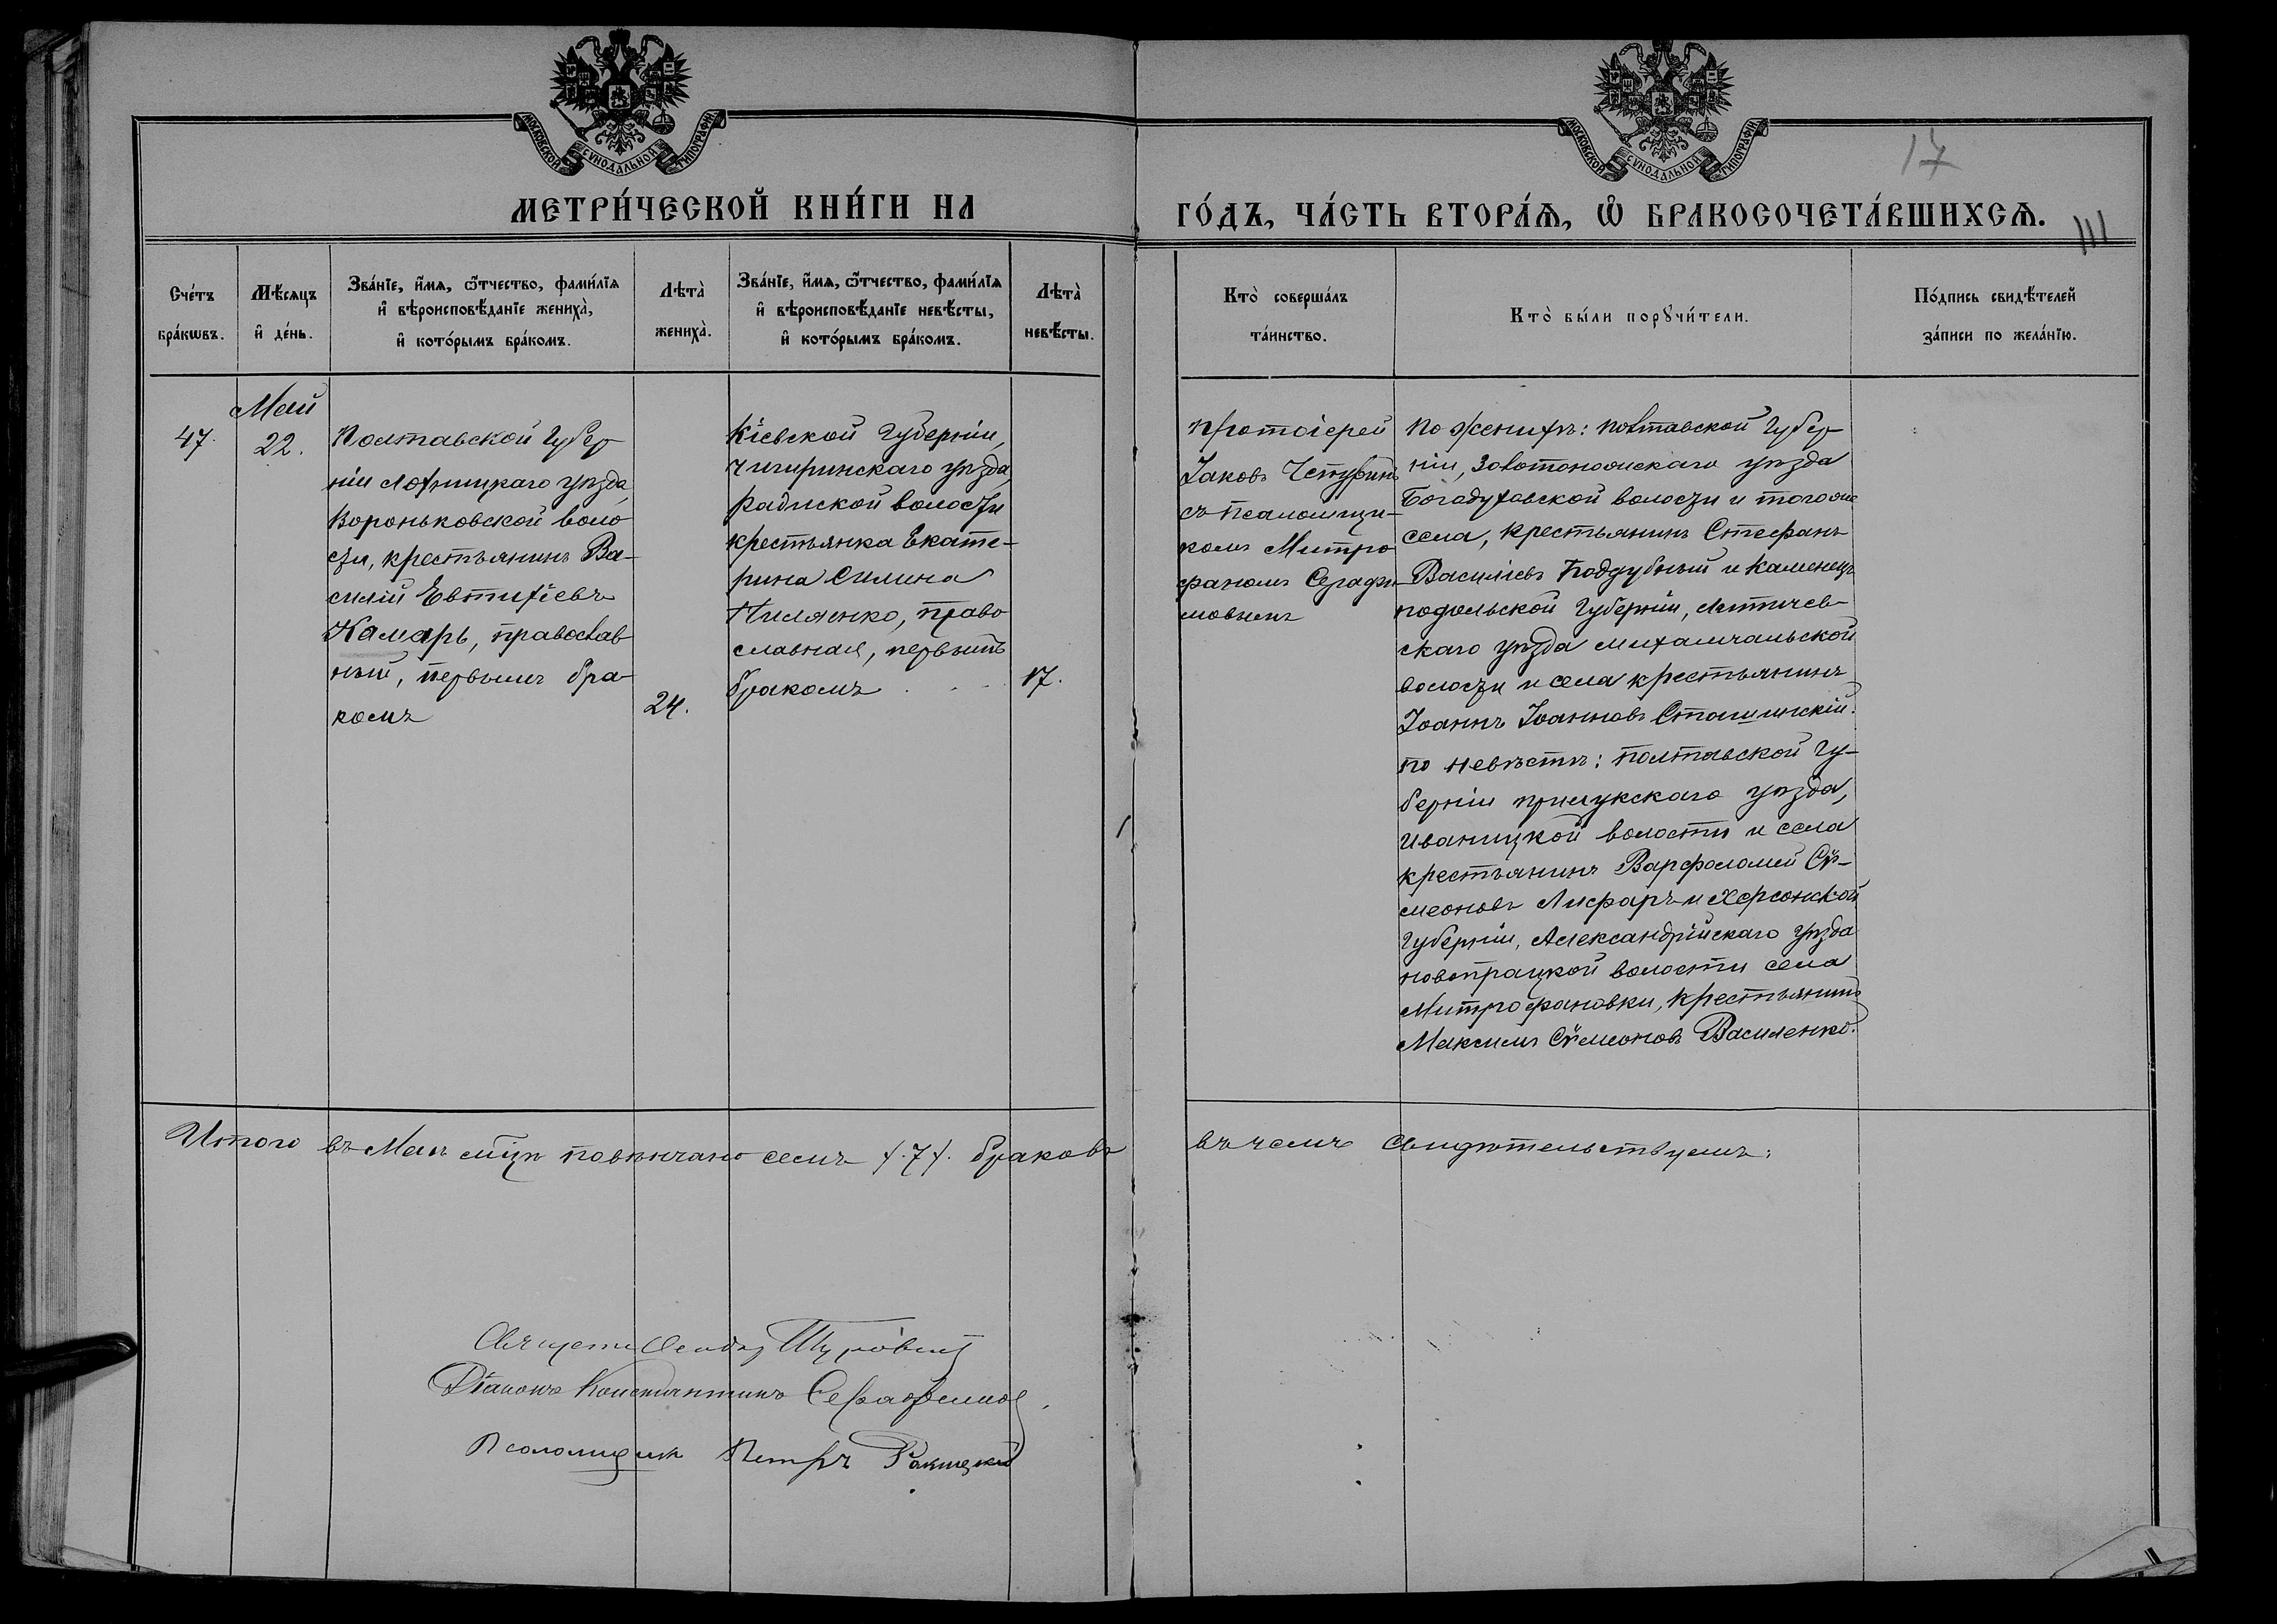 МОСКОВСКОЙ СѴНОДАЛЬНОЙ ТИПОГРАФІИ
МОСКОВСКОЙ СѴНОДАЛЬНОЙ ТИПОГРАФІИ
17
МЕТРИ́ЧЕСКОЙ КНИ́ГИ НА
ГО́ДЪ, ЧА́СТЬ ВТОРА́Ѧ, Ѽ БРАКОСОЧЕТА́ВШИХСѦ.
111
Сче́тъ
бра́кѡвъ.
Мѣ́сѧцъ
и҆ де́нь.
Зва́нїе, и҆́мѧ, ѻ҆́тчество, фами́лїѧ
и҆ вѣроисповѣ́данїе жениха̀,
и҆ кото́рымъ бра́комъ.
Лѣта̀
жениха̀.
Зва́нїе, и҆́мѧ, ѻ҆́тчество, фами́лїѧ
и҆ вѣроисповѣ́данїе невѣ́сты,
и҆ кото́рымъ бра́комъ.
Лѣта̀
невѣ́сты.
Кто̀ соверша́лъ
та́инство.
Кто̀ бы́ли порꙋчи́тели.
По́дпись свидѣ́телей
за́писи по жела́нїю.
47.
Май
22.
Полтавской Губер
ніи Лохвицкаго уѣзда,
Вороньковской воло
сти, крестьянинъ Ва-
силій Евтихіевъ
Комарь, православ
ный, первымъ бра
комъ
24.
Кіевской Губерніи,
Чигиринскаго уѣзда,
крестьянка Екате-
рина Силина
право
славная, первымъ
бракомъ
17.
Протоіерей
Іаковъ
съ псаломщи-
комъ Митро
фаномъ Серафи-
мовымъ
По женихѣ: Полтавской Губер
ніи, Золотоношскаго уѣзда
Богодуховской волости и того же
села, крестьянинъ Стефанъ
Василіевъ Поддубный и Каменецъ
подольской Губерніи, Летичев-
скаго уѣзда
волости и села крестьянинъ
Іоаннъ Іоанновъ
по невѣстѣ: Полтавской Гу-
берніи Прилукскаго уѣзда,
Иваницкой волости и села
крестьянинъ Варфоломей Сѵ-
меоновъ Лифарь и Херсонской
Губерніи, Александрійскаго уѣзда
Новопражской волости села
Митрофановки, крестьянинъ
Максимъ Сѵмеоновъ Василенко.
Итого въ Маѣ мцѣ повѣнчано семь /.7/. браковъ
въ чемъ свидѣтельствуемъ:
Діаконъ Константинъ Серафимов
Псаломщик Петръ